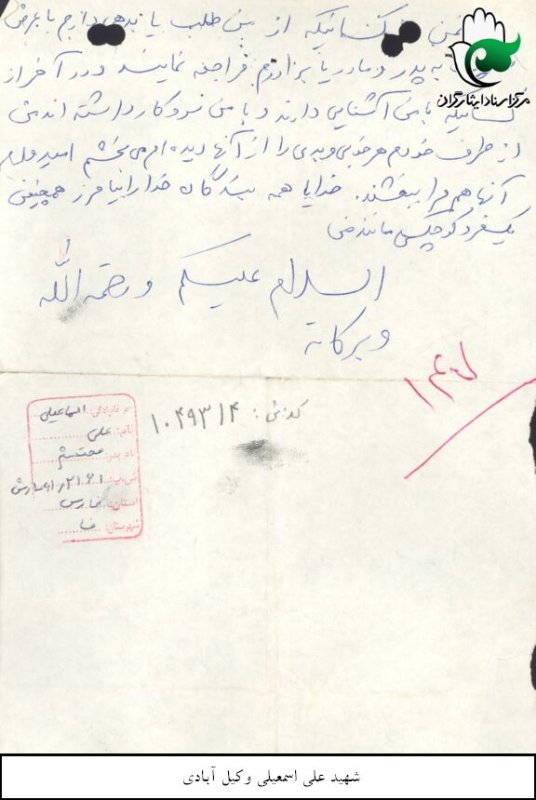 مرکز اسناد ایثارگران
ضمن کسانیکه از من طلب یا بدهی دارم با عرض
به پدر و مادر یا برادرم مراجعه نمایند و در آخر از
کسانیکه با من آشنایی دارند و با من سر و کار داشته اند من
از طرف خودم هر خوبی و بدی را از آنها دیده ام می بخشم امیدوارم
آنها هم مرا ببخشند. خدایا همه بندگان خدا را بیامرز همچنین
یکفرد کوچکی مانند من
السلام علیکم و رحمة الله
و برکاته
کد ش: ۱۰۴۹۳۱۴
نام خانوادگی: اسماعیلی
نام: علی
نام پدر: محتشم
استان: فارس
شهرستان: فسا
شهید علی اسمعیلی وکیل آبادی